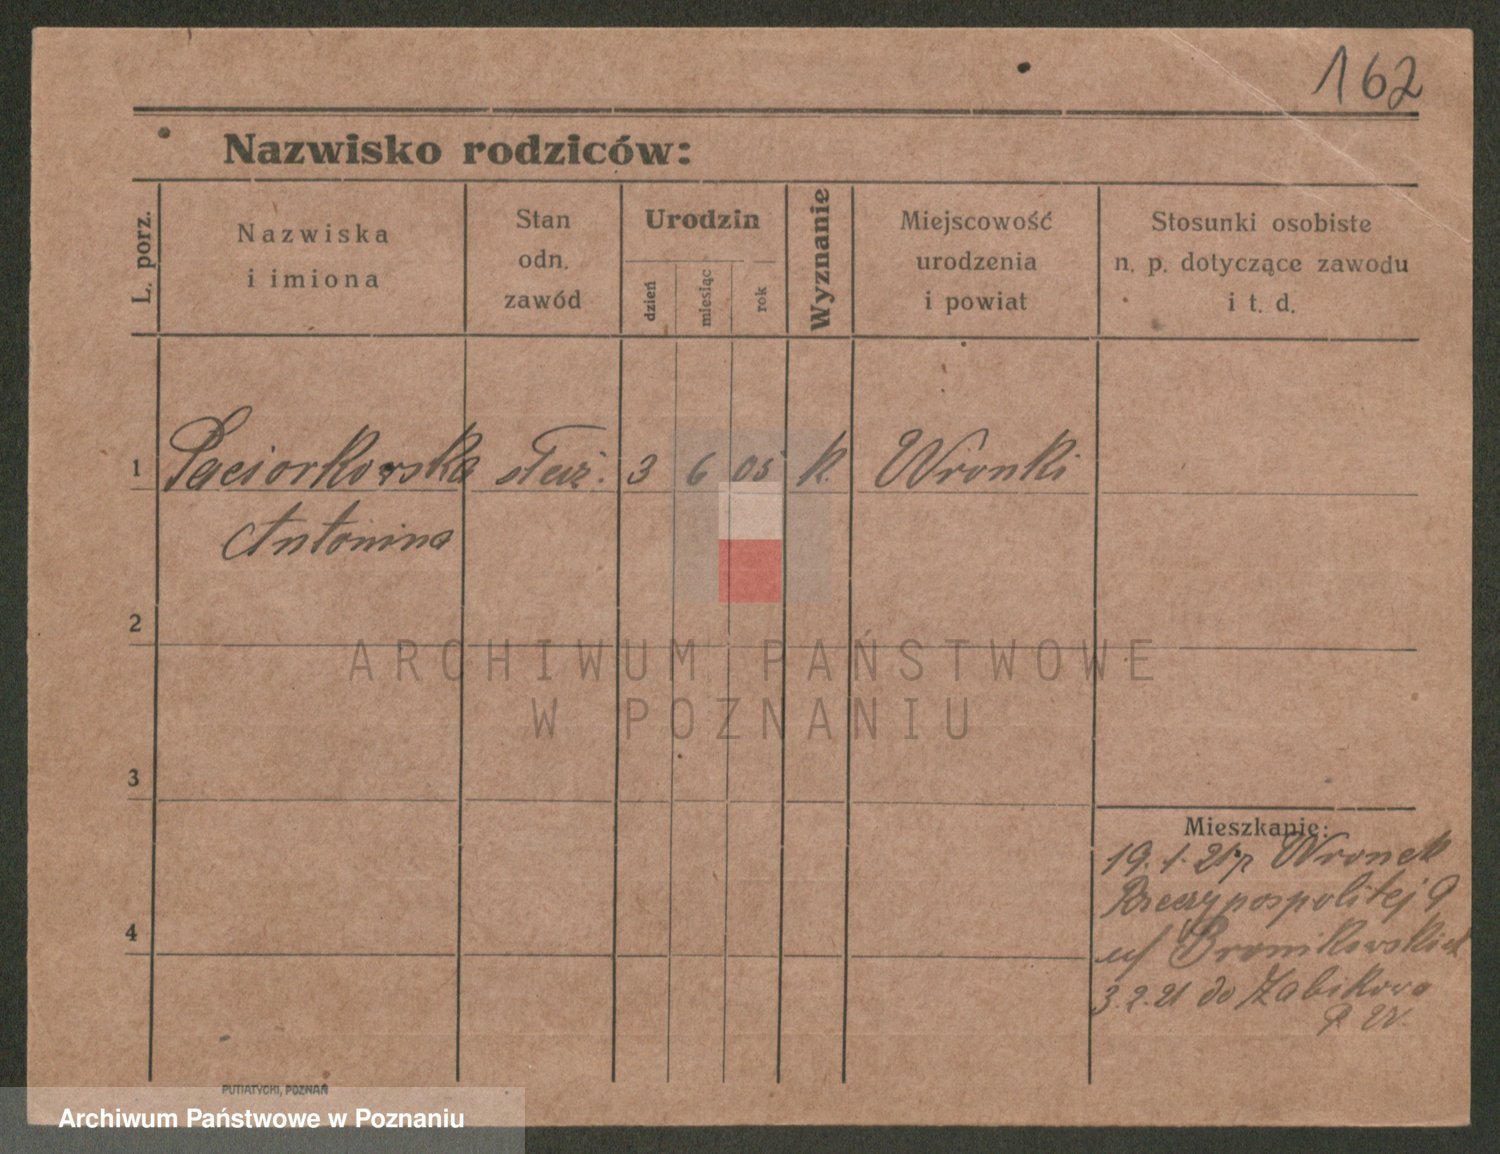 162
Nazwisko rodziców:
L. porz.
Nazwiska
i imiona
Stan
odn.
zawód
Urodzin
dzień
miesiąc
rok
Wyznanie
Miejscowość
urodzenia
i powiat
Stosunki osobiste
n. p. dotyczące zawodu
i t. d.
1 Paciorkowska służ. 3 6 05 k. Wronki
Antonina
2
3
4
Mieszkanie:
19. 1. 21 Wronek
Rzeczypospolitej 9
Bronikowskich
3. 2. 21 do Żabikowa
PUTIATYCKI, POZNAŃ
ARCHIWUM PAŃSTWOWE
W POZNANIU
Archiwum Państwowe w Poznaniu